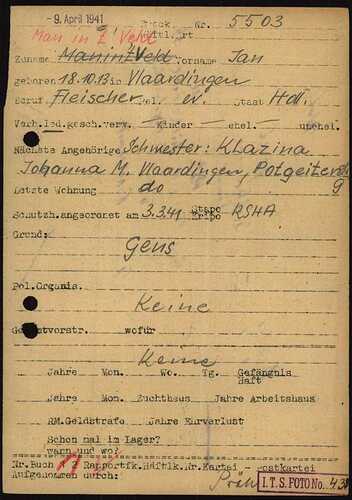 - 9. April 1941 Block Nr. 5503
Häftl.art
Man in Z' Veld
Zuname Man in Z' Veld Vorname Jan
geboren 18.10.13 in Vlaardingen
Beruf Fleischer Rel. ev. Staat Holl.
Verh. led. gesch. verw. — Kinder — ehel. — unehel.
Nächste Angehörige Schwester: Klazina
Johanna M. Vlaardingen, Potgeiter
Letzte Wohnung do 9
Schutzh. angeordnet am 3.3.41 Stapo Kripo RSHA
Grund:
Gens
Pol. Organis.
Keine
wofür
Keine
Jahre Mon. Wo. Tg. Gefängnis
Haft
Jahre Mon. Zuchthaus Jahre Arbeitshaus
RM. Geldstrafe Jahre Ehrverlust
Schon mal im Lager?
wann und wo?
Nr. Buch Rapportfk. Häftlk. Nr. Kartei - Postkartei
Aufgenommen durch:
I.T.S. FOTO No. 438